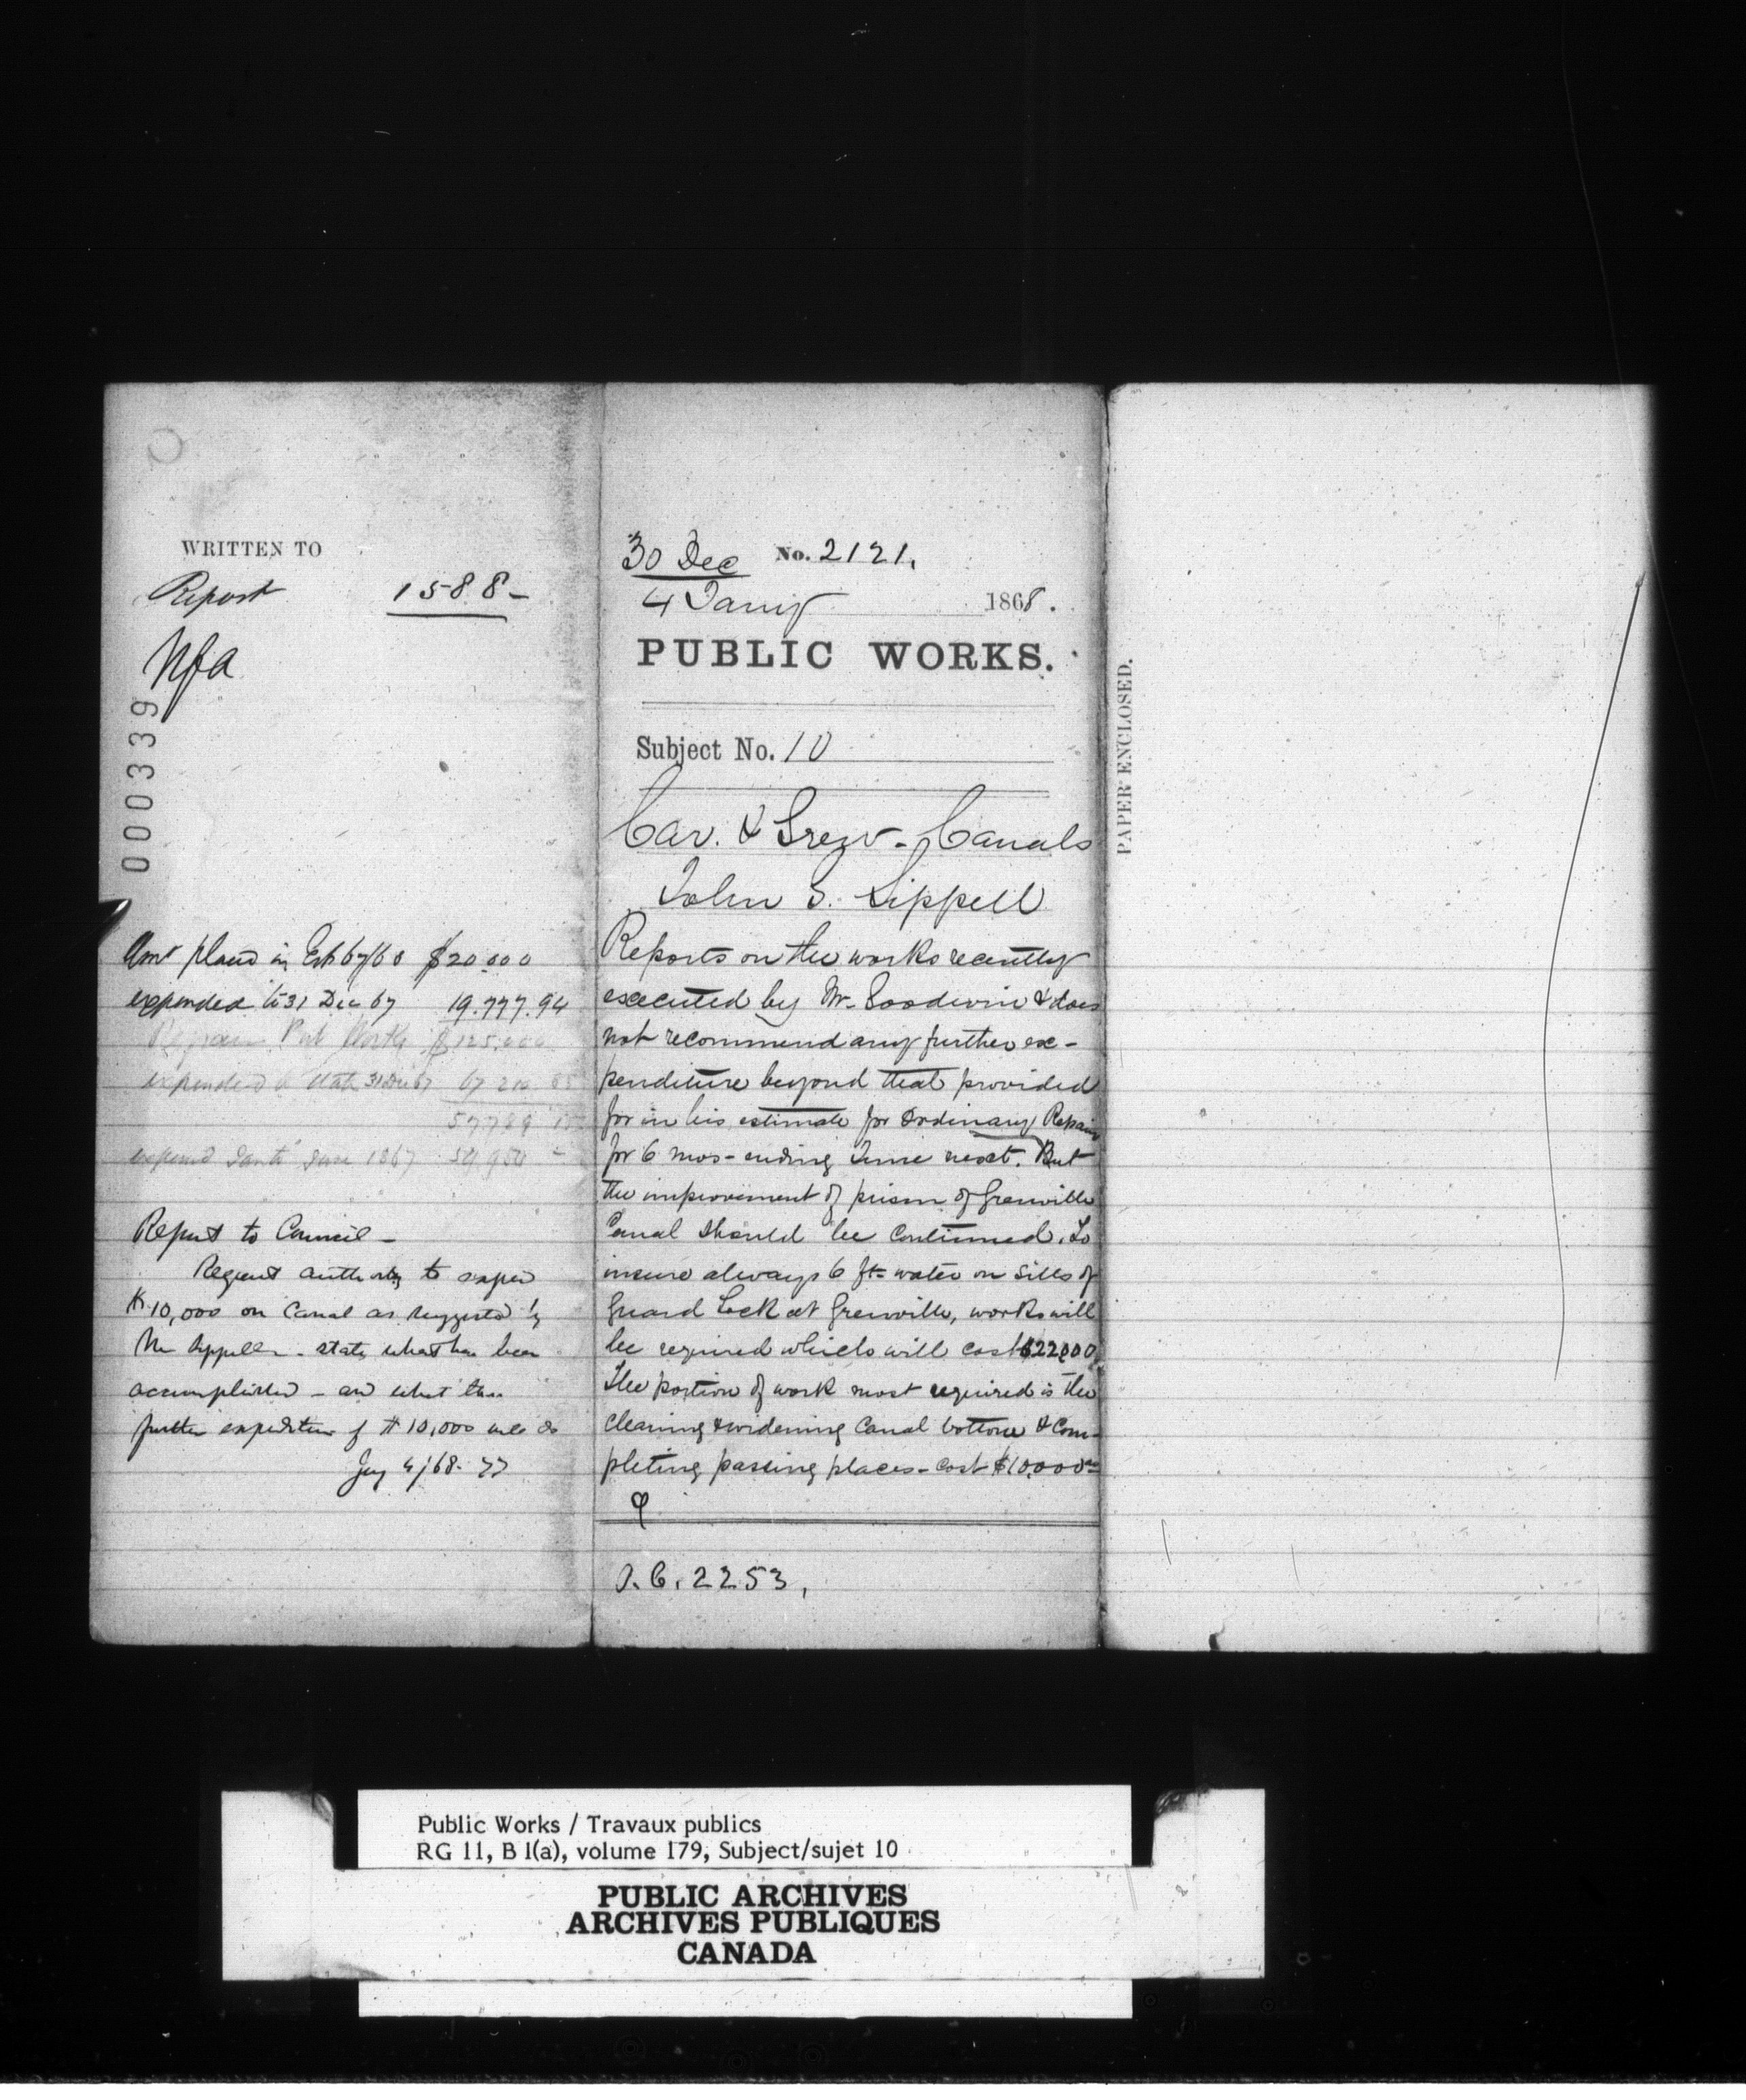 WRITTEN TO
Report 1588-
Nfa
000339
Amt placed in Est 67/68 $20.000
expended to 31 Dec 67 19.777.94
Pub Works $125.000
expended to 31 Dec 67 67 210 85
57789 15
June 1867
Report to Council -
Request authority to expend
$10,000 on Canal as suggested by
Mr Sippell - state what has been
accomplished - and what the
further expenditure of $10,000 will do
Jny 4/68.
30 Dec No. 2121.
4 Jany 1868.
PUBLIC WORKS.
Subject No. 10
Car. & Grenv. Canals
John G. Sippell
Reports on the works recently
executed by Mr. Goodwin & does
not recommend any further ex-
penditure beyond that provided
for in his estimate for Ordinary Repairs
for 6 mos- ending June next. But
the improvement of prism of Grenville
Canal should be continued. To
insure always 6 ft- water on Sills of
Guard Lock at Grenville, works will
be required which will cost $22,000.
The portion of work most required is the
clearing & widening Canal bottom & com-
pleting passing places - cost $10,000
O.C. 2253,
PAPER ENCLOSED.
Public Works / Travaux publics
RG 11, B 1(a), volume 179, Subject/sujet 10
PUBLIC ARCHIVES
ARCHIVES PUBLIQUES
CANADA